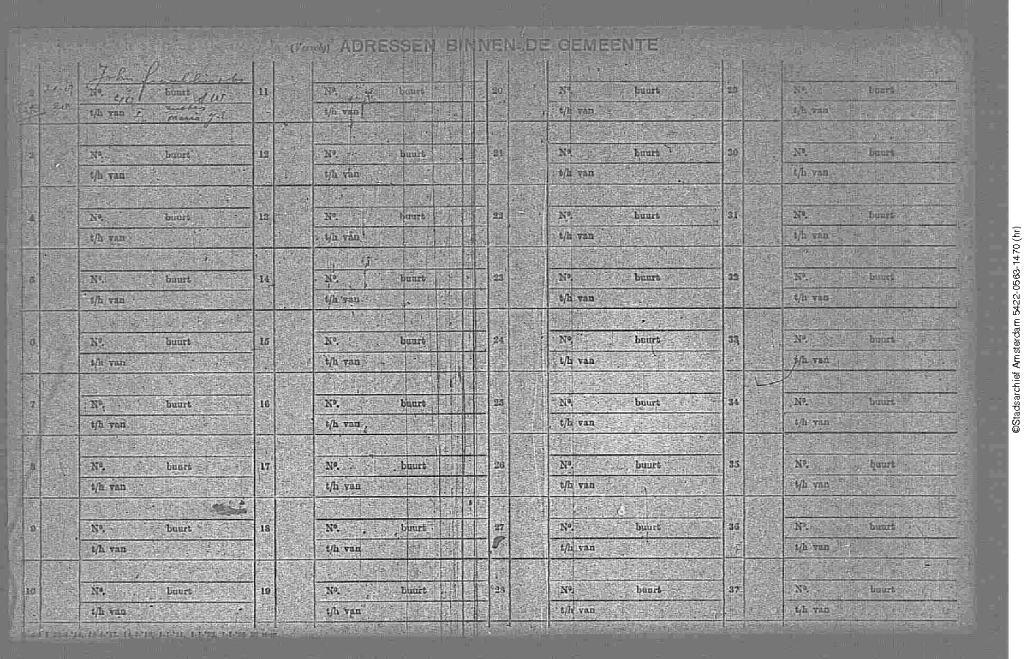 (Vervolg) ADRESSEN BINNEN DE GEMEENTE
2
Nº. buurt
t/h van
3
Nº. buurt
t/h van
4
Nº. buurt
t/h van
5
Nº. buurt
t/h van
6
Nº. buurt
t/h van
7
Nº. buurt
t/h van
8
Nº. buurt
t/h van
9
Nº. buurt
t/h van
10
Nº. buurt
t/h van
11
Nº. buurt
t/h van
12
Nº. buurt
t/h van
13
Nº. buurt
t/h van
14
Nº. buurt
t/h van
15
Nº. buurt
t/h van
16
Nº. buurt
t/h van
17
Nº. buurt
t/h van
18
Nº. buurt
t/h van
19
Nº. buurt
t/h van
20
Nº. buurt
t/h van
21
Nº. buurt
t/h van
22
Nº. buurt
t/h van
23
Nº. buurt
t/h van
24
Nº. buurt
t/h van
25
Nº. buurt
t/h van
26
Nº. buurt
t/h van
27
Nº. buurt
t/h van
28
Nº. buurt
t/h van
29
Nº. buurt
t/h van
30
Nº. buurt
t/h van
31
Nº. buurt
t/h van
32
Nº. buurt
t/h van
33
Nº. buurt
t/h van
34
Nº. buurt
t/h van
35
Nº. buurt
t/h van
36
Nº. buurt
t/h van
37
Nº. buurt
t/h van
©Stadsarchief Amsterdam 5422-0563-1470 (hr)